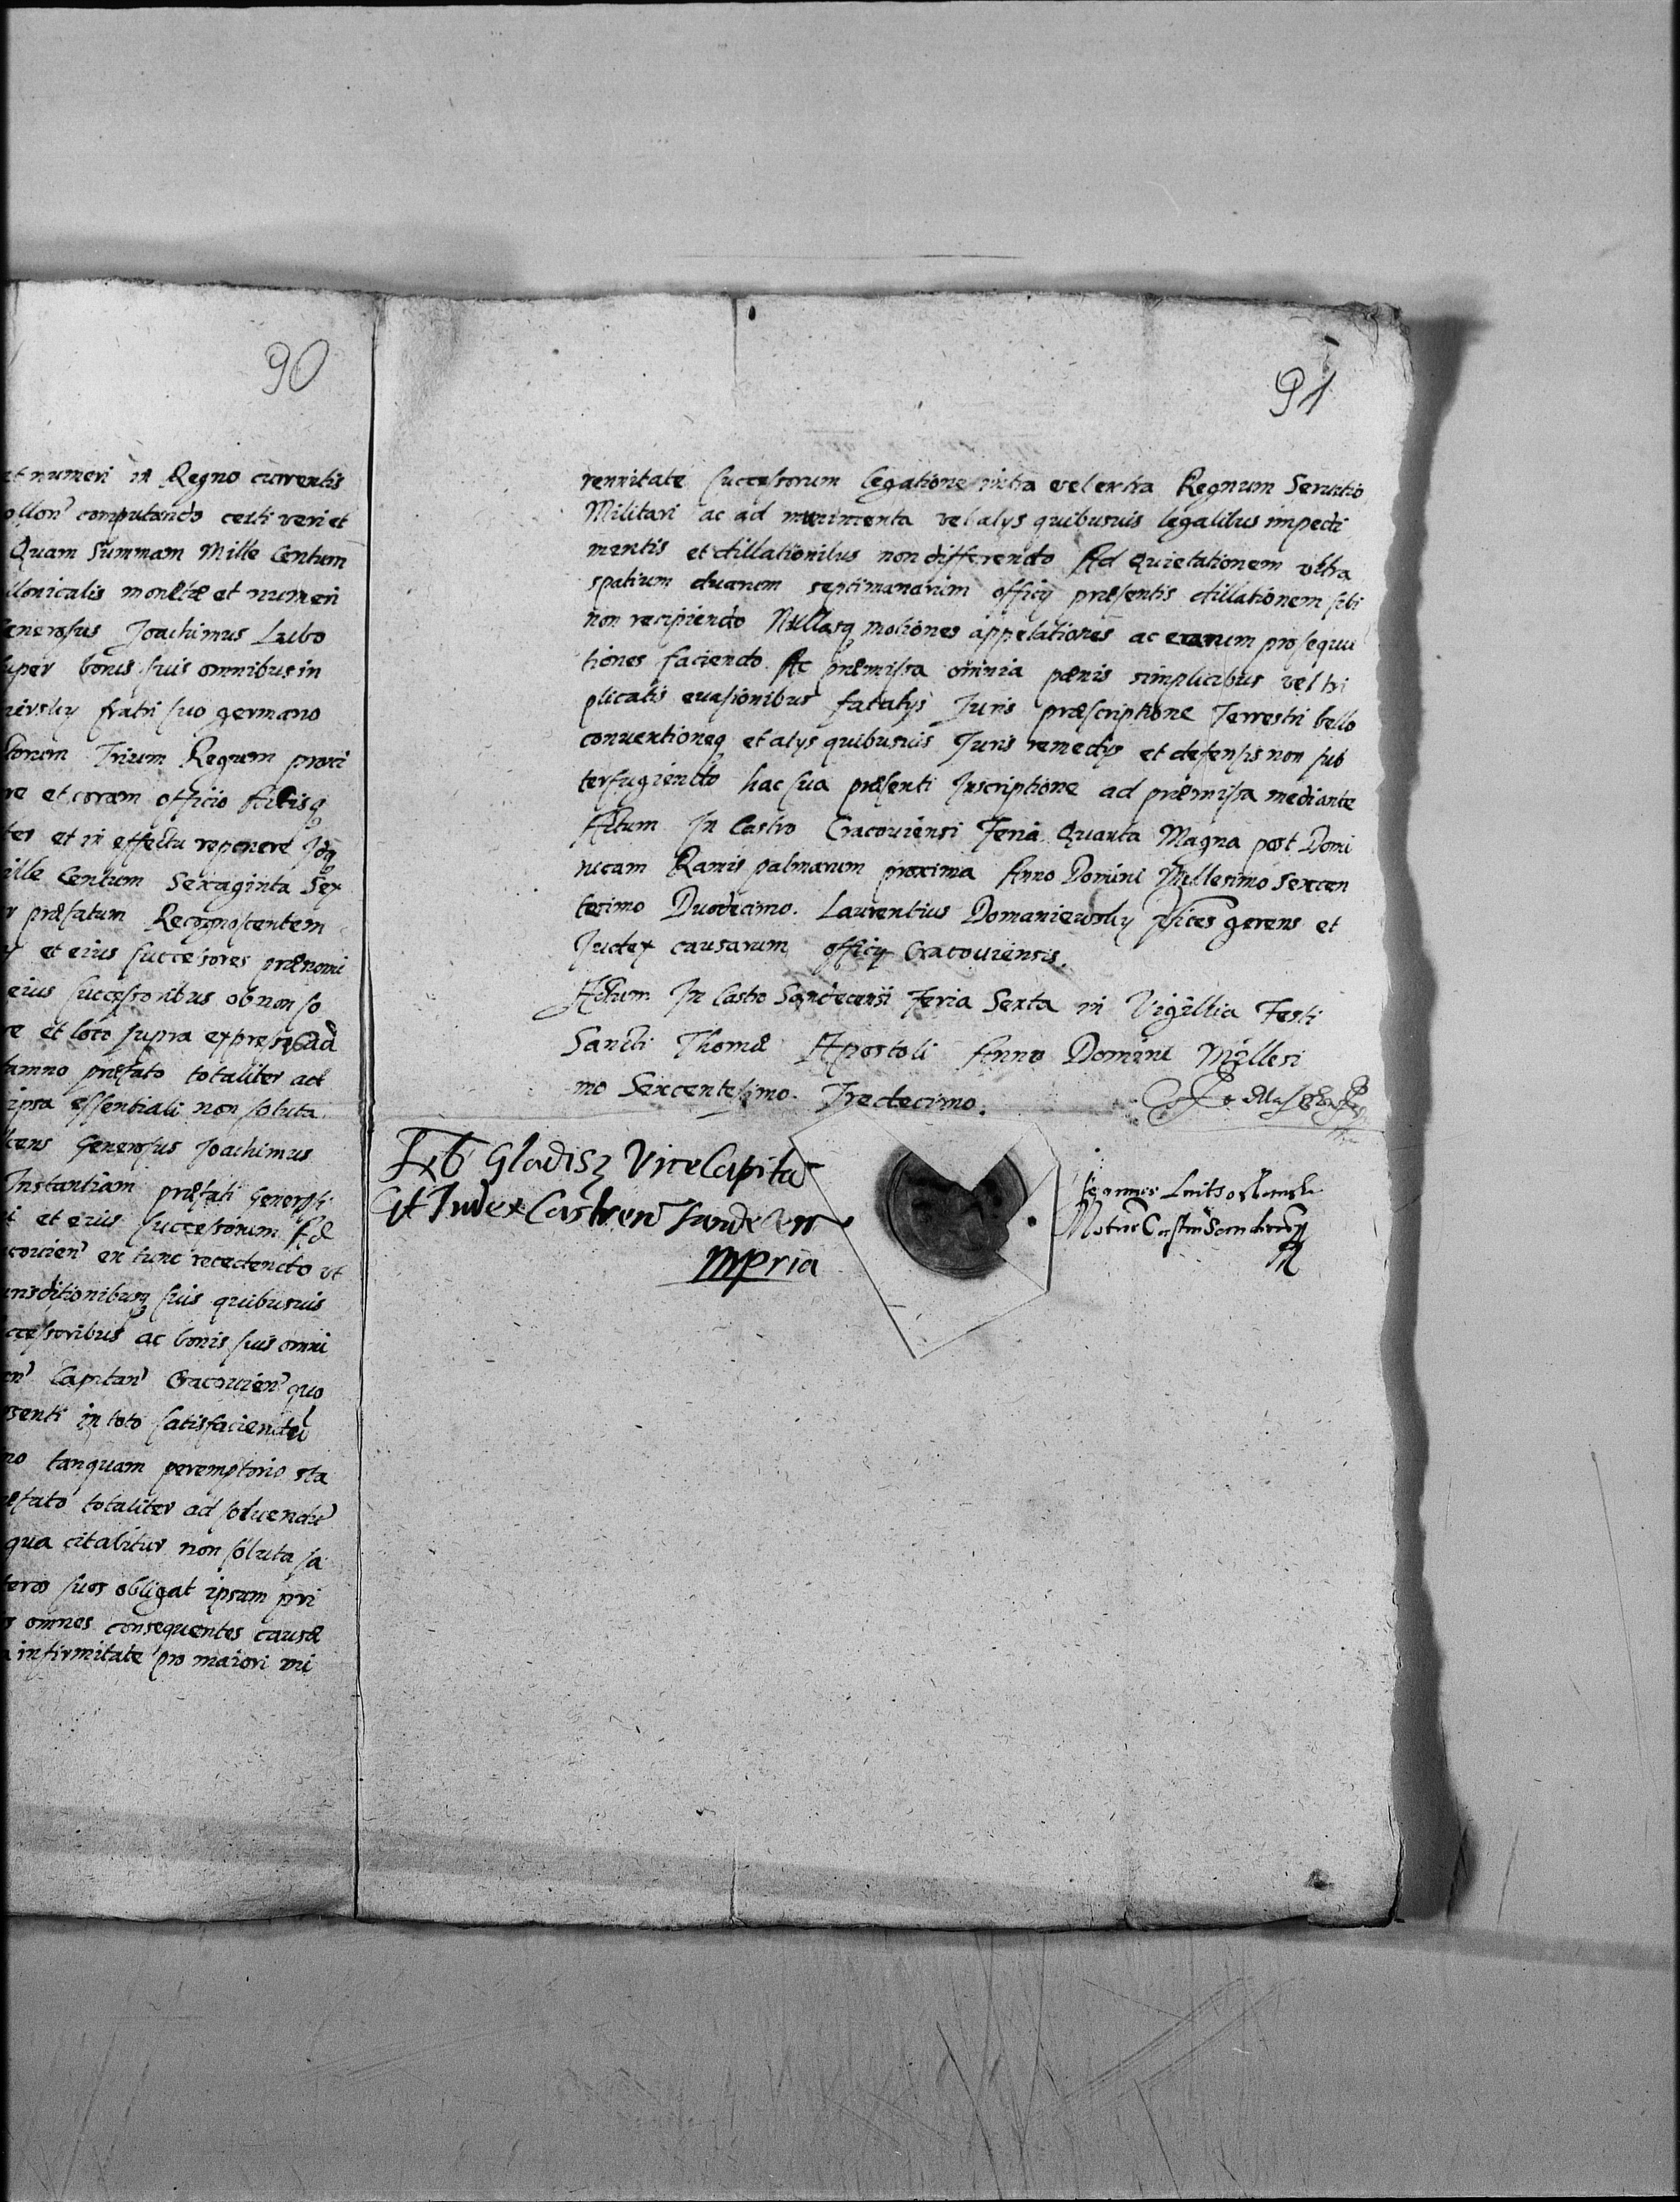 90
et numeri in Regno currentis
ollon' computando certi veri et
Quam Summam Mille Centum
llonicalis monetæ et numeri
enerosus Joachimus Lubo
uper bonis suis omnibus in
niewsky fratri suo germano
torum Trium Regum proxi
re et coram officio Actisq
ter et in effectu reponere Idq
ille Centum Sexaginta Sex
r præfatum Recognoscentem
et eius successores prænomi
eius successoribus ob non so
re et loco supra expressis ad
amno præfato totaliter ad
ipsa essentiali non soluta
cens Generosus Joachimus
Instantiam præfati Generosi
i et eius successorum Ad
acouien' ex tunc recedendo vt
urisditionibusq suis quibusuis
ccessoribus ac bonis suis omni
en' Capitan' Cracouien' quo
senti in toto satisfaciendu
no tanquam peremptorio sta
æfato totaliter ad soluendu
qua citabitur non soluta sa
teros suos obligat ipsum pri
s omnes consequentes causæ
a infirmitate pro maiori mi
91
rennitate successorum legatione intra vel extra Regnum Seruitio
Militari ac ad munimenta vel alys quibusuis legalibus impedi
mentis et dillationibus non differendo Ad Quietationem vltra
spatium duarum septimanarum officy præsentis dillationem sibi
non recipiendo Nullasq motiones appelationes ac earum prosequu
tiones faciendo Ac præmissa omnia pænis simplicibus vel tri
plicatis euasionibus fatalys Juris præscriptione Terrestri bello
conuentioneq et alys quibusuis Juris remedys et defensis non sub
terfugiendo hac sua præsenti Inscriptione ad præmissa mediante
Actum In Castro Cracouiensi Feria Quarta Magna post Domi
nicam Ramis palmarum proxima Anno Domini Millesimo Sexcen
tesimo Duodecimo. Laurentius Domaniewsky Vices gerens et
Judex causarum officy Cracouiensis.
Actum In Castro Sandecensi Feria Sexta in Vigillia Festi
Sancti Thomæ Apostoli Anno Domini Millesi
mo Sexcentesimo. Tredecimo.
Gladisz Vice Capita
Et Iudex Castren Sandecen
mpria
Joannes
Notar Castrn Sandecen